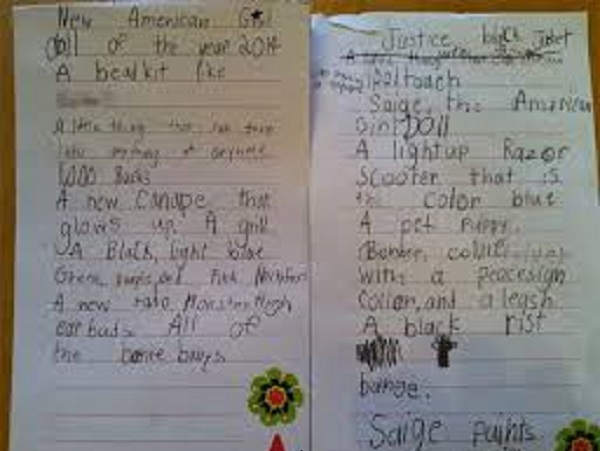 New American Girl
doll of the year 2014
A bead kit like
A little thing that can turn
into anything at anytime
1,000 Bucks
A new Canape that
glows up. A grill
A Black, light blue
Green, purple, and Pink
A new radio, Monster High
ear buds. All of
the
Justice black
Ipod touch
Saige, the American
Girl Doll
A light up Razor
Scooter that is
the color blue
A pet puppy.
(Border collie
with a peacesign
Collar, and a leash
A black rist
Saige paints